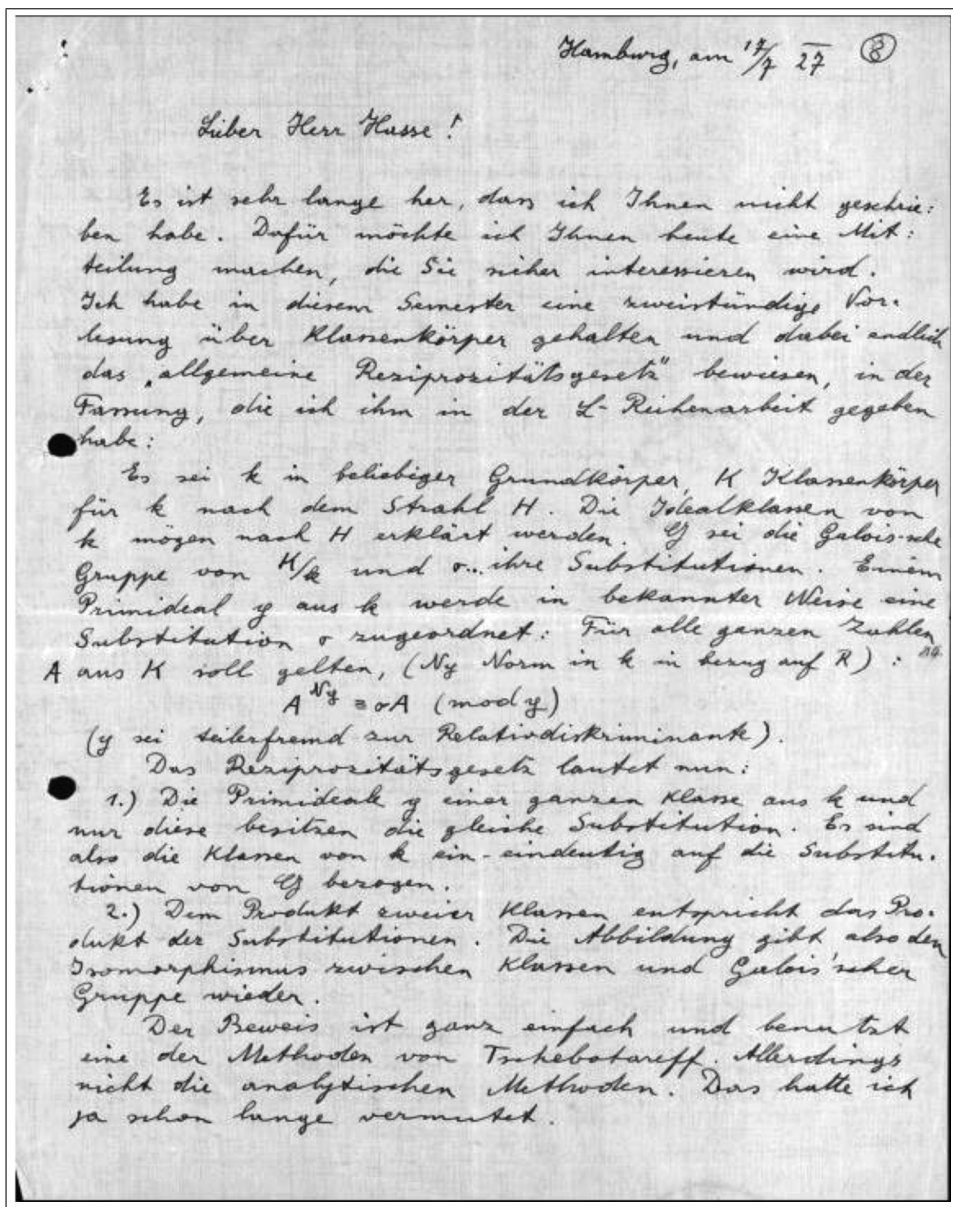 Hamburg, am 17/7 27 ⑧
Lieber Herr Hasse!
Es ist sehr lange her, dass ich Ihnen nicht geschrie:
ben habe. Dafür möchte ich Ihnen heute eine Mit:
teilung machen, die Sie sicher interessieren wird.
Ich habe in diesem Semester eine zweistündige Vor-
lesung über Klassenkörper gehalten und dabei endlich
das „allgemeine Reziprozitätsgesetz" bewiesen, in der
Fassung, die ich ihm in der L-Reihenarbeit gegeben
habe:
Es sei k in beliebiger Grundkörper, K Klassenkörper
für k nach dem Strahl H. Die Idealklassen von
k mögen nach H erklärt werden. G sei die Galois-sche
Gruppe von K/k und σ... ihre Substitutionen. Einem
Primideal y aus k werde in bekannter Weise eine
Substitution σ zugeordnet: Für alle ganzen Zahlen
A aus K soll gelten, (Ny Norm in k in bezug auf R) :
A^Ny ≡ σA (mod y)
(y sei teilerfremd zur Relativdiskriminante).
Das Reziprozitätsgesetz lautet nun:
1.) Die Primideale y einer ganzen Klasse aus k und
nur diese besitzen die gleiche Substitution. Es sind
also die Klassen von k ein-eindeutig auf die Substitu-
tionen von G bezogen.
2.) Dem Produkt zweier Klassen entspricht das Pro-
dukt der Substitutionen. Die Abbildung gibt also den
Isomorphismus zwischen Klassen und Galois'scher
Gruppe wieder.
Der Beweis ist ganz einfach und benutzt
eine der Methoden von Tschebotareff. Allerdings
nicht die analytischen Methoden. Das hatte ich
ja schon lange vermutet.